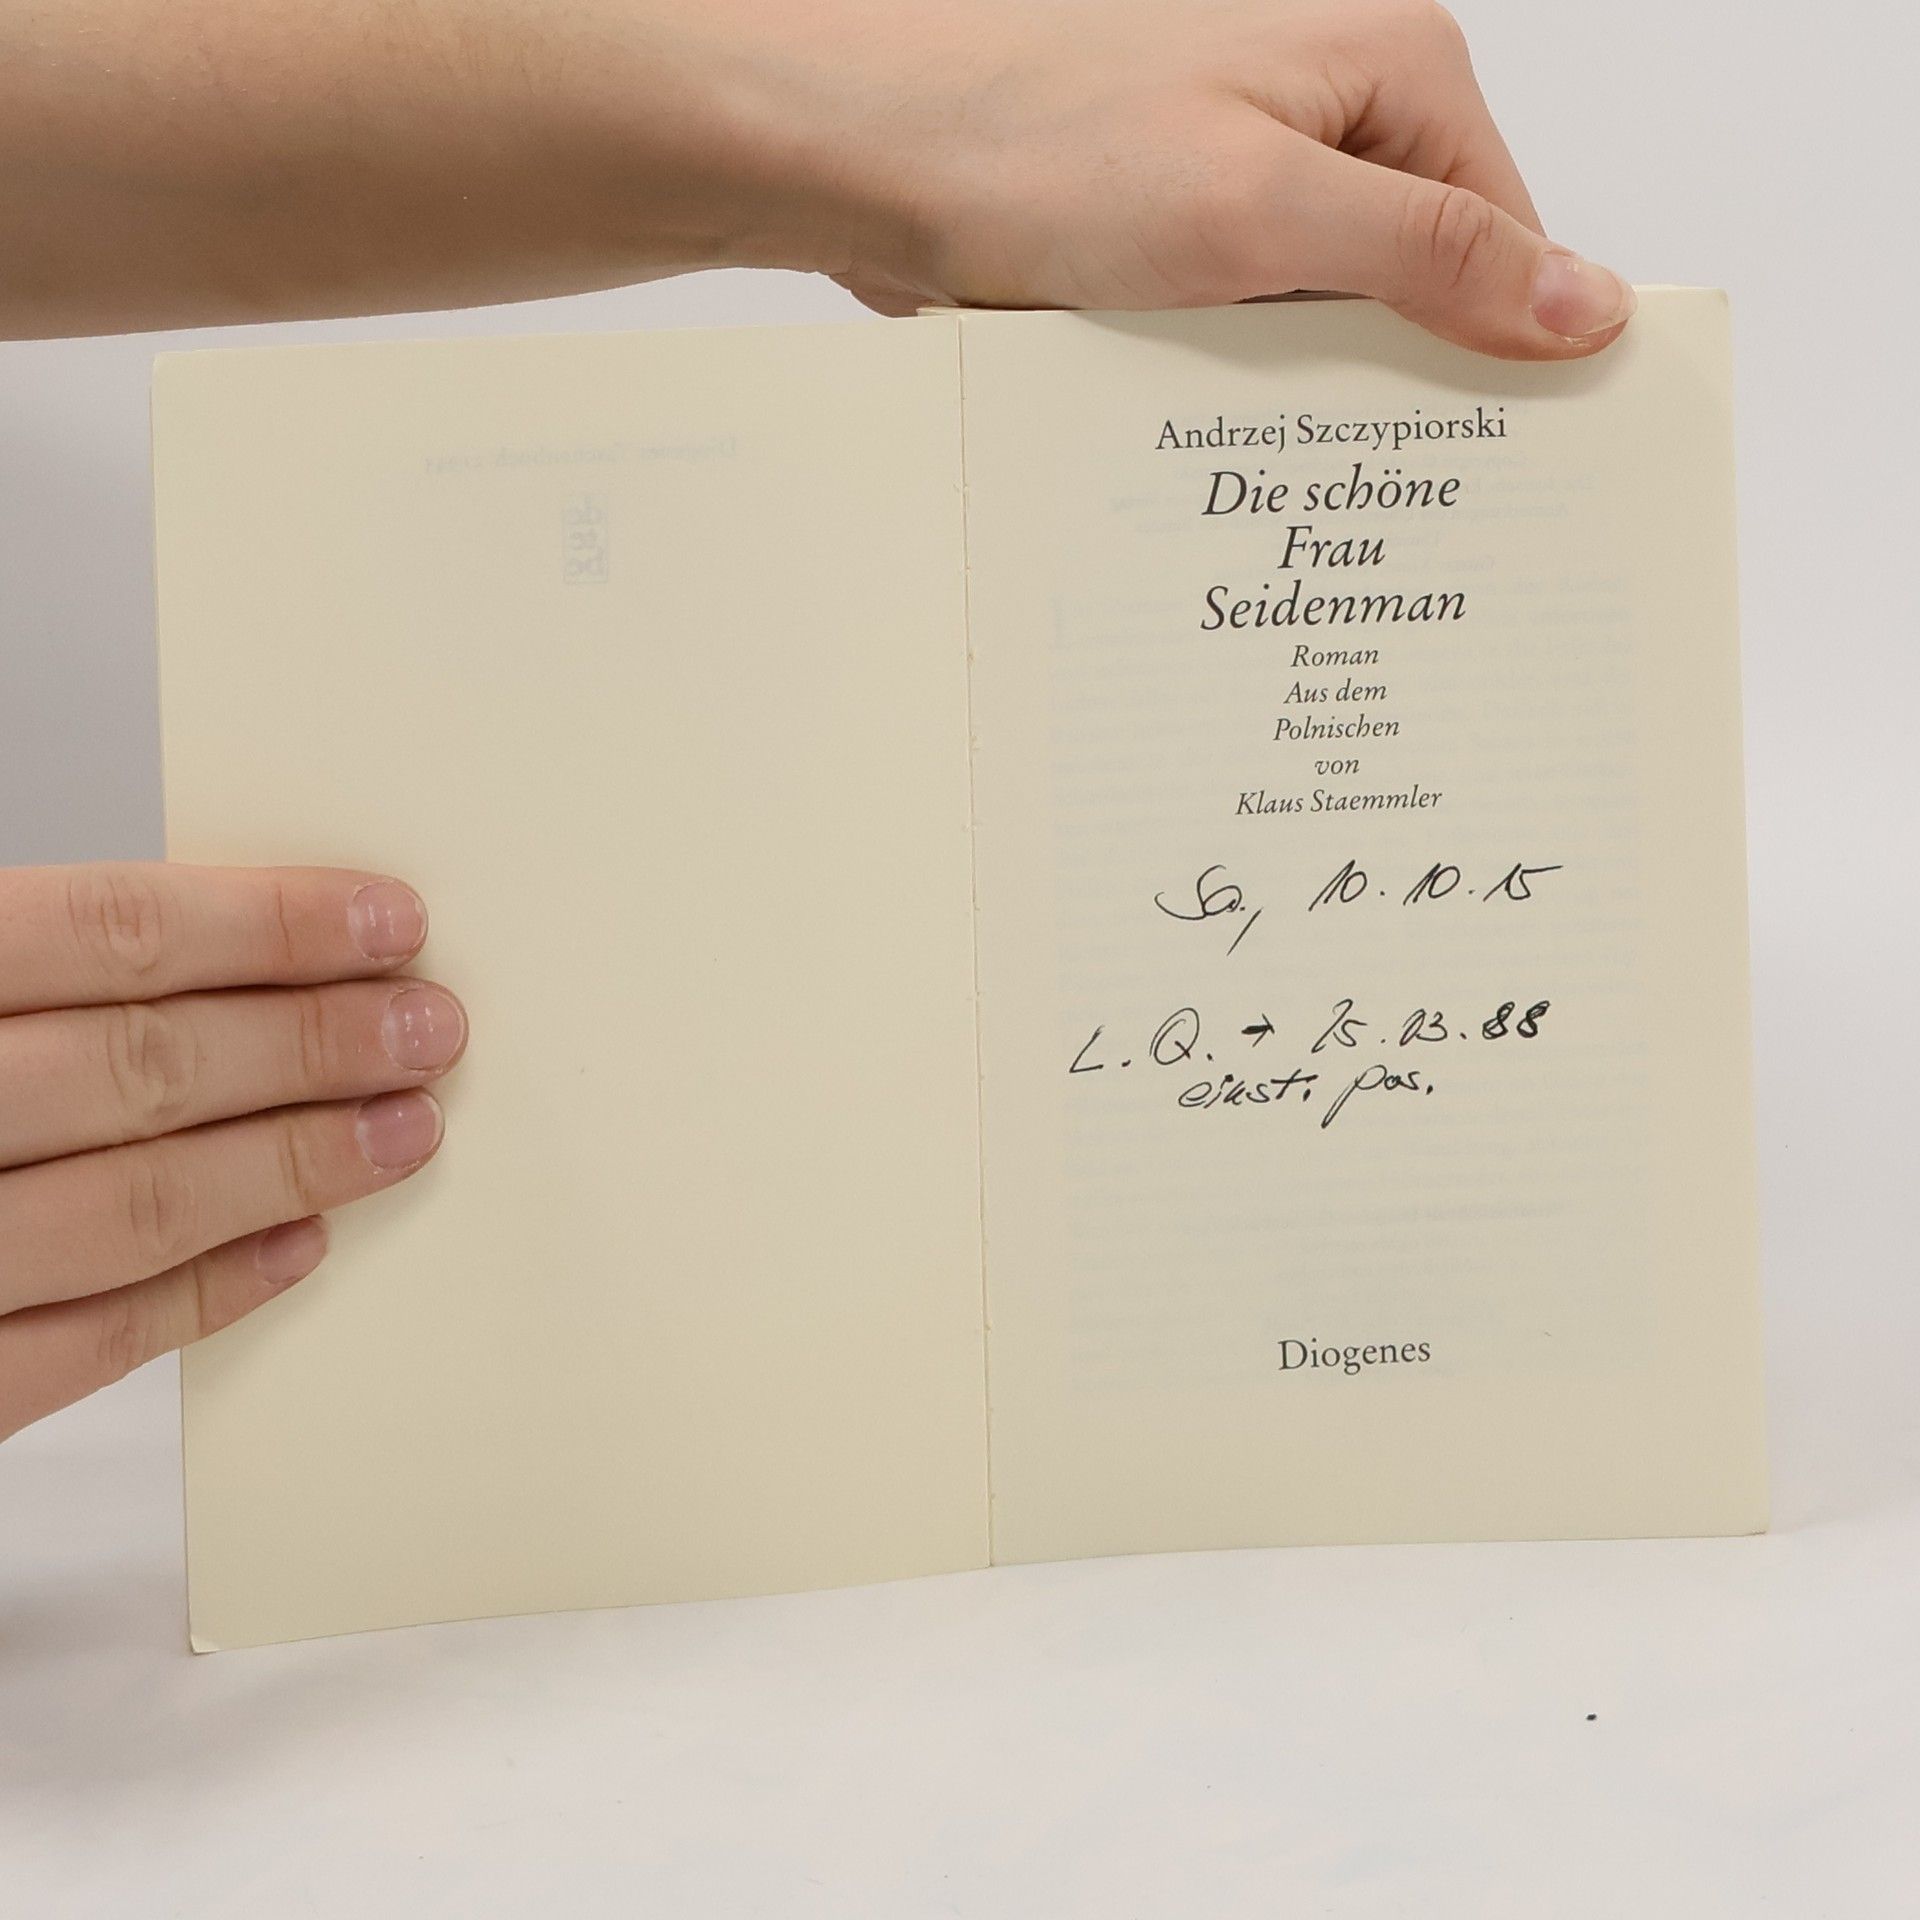 Andrzej Szczypiorski
Die schöne
Frau
Seidenman
Roman
Aus dem
Polnischen
von
Klaus Staemmler
Sa., 10.10.15
L.Q. → 15.03.88
einst. pos.
Diogenes